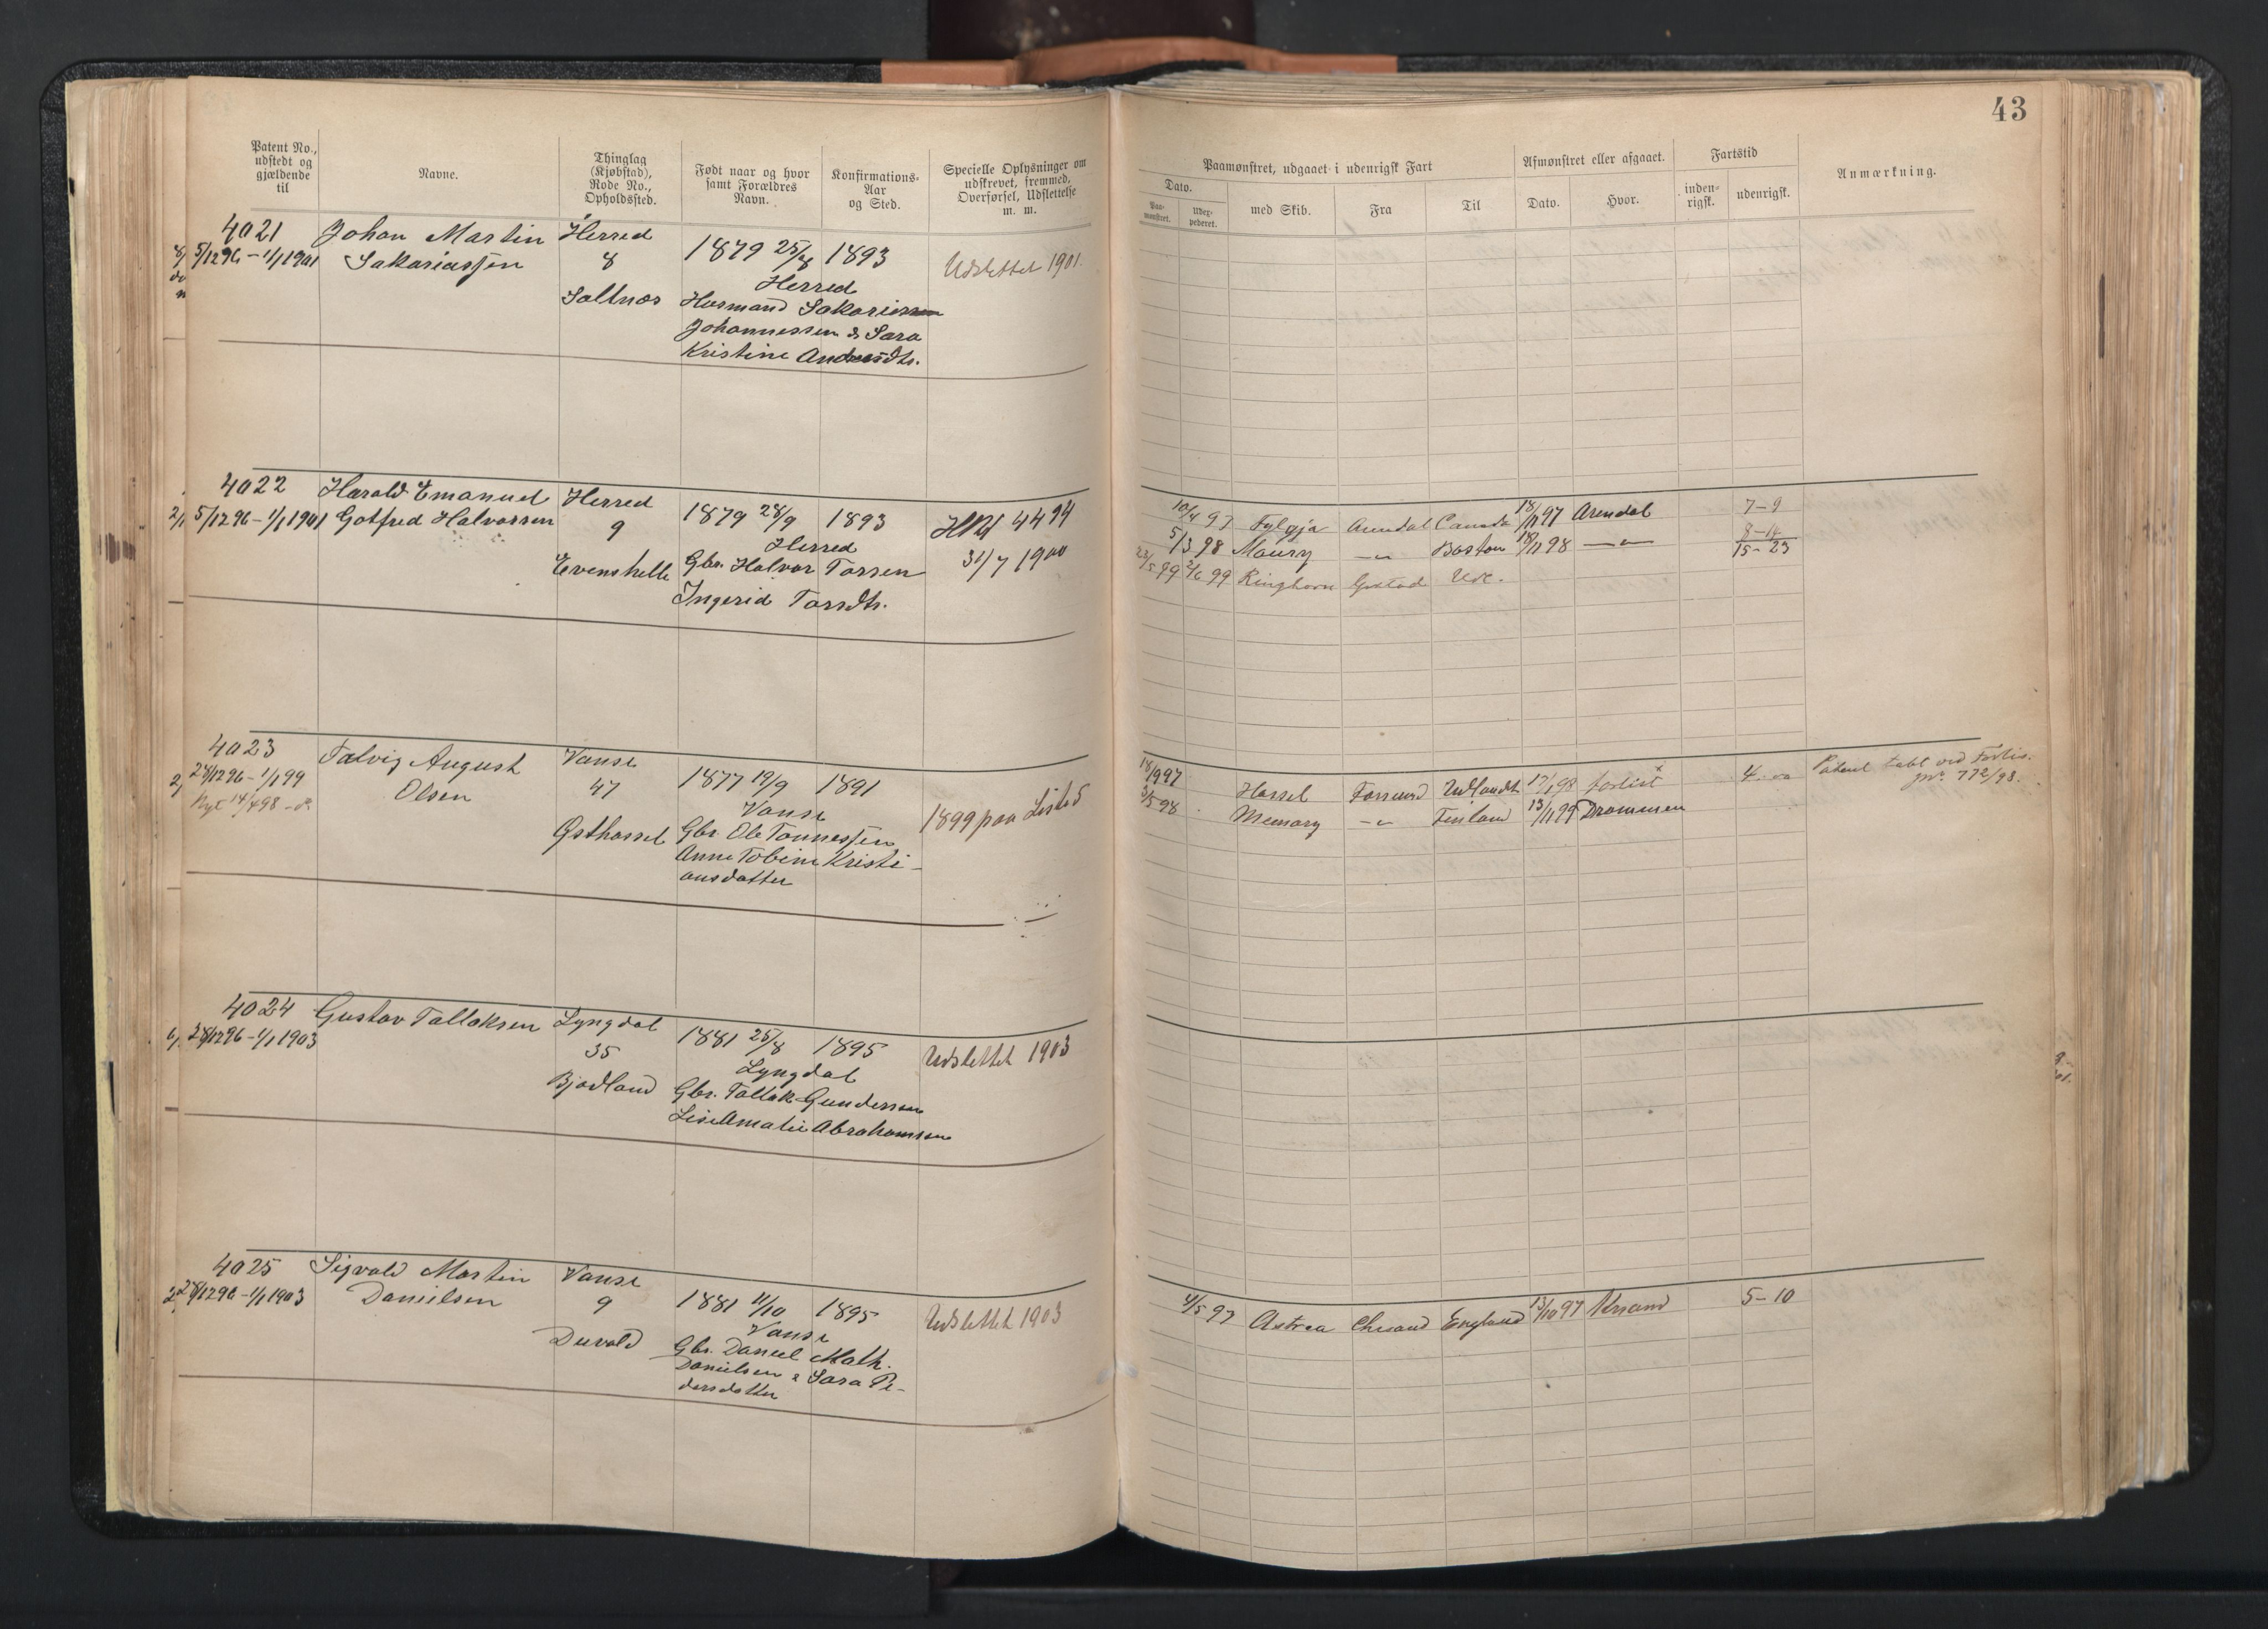 43
Patent No.,
udstedt og
gjældende
til
Navne.
Thinglag
(Kjøbstad),
Rode No.,
Opholdssted.
Født naar og hvor
samt Forældres
Navn.
Konfirmations-
Aar
og Sted.
Specielle Oplysninger om
udskrevet, fremmed,
Overførsel, Udslettelse
m. m.
Paamønstret, udgaaet i udenrigsk Fart
Dato.
Paa-
mønstret.
Udex-
pederet.
med Skib.
Fra
Til
Afmønstret eller afgaaet.
Dato.
Hvor.
Fartstid
inden-
rigsk.
udenrigsk.
Anmærkning.
4021 Johan Martin Herred
5/12 96 - 1/1 1901 Sakariassen 8 1879 25/8 1893 Udslettet 1901.
Herred
Saltnæs Husmand Sakariassen
Johannessen & Sara
Kristine Andersdtr.
4022 Harald Emanuel Herred
5/12 96 - 1/1 1901 Gotfred Halvorsen 9 1879 28/9 1893 HRd 4494
Herred
Evenshelle Gbr. Halvor Torsen 31/7 1900
Ingerid Torsdtr.
10/4 97 Fylgja Arendal Canada 18/11 97 Arendal 7-9
5/3 98 Maury -"- Boston 18/11 98 -"- 8-14
15-23
23/5 99 2/6 99 Ringhorn Grstad Udl.
4023 Falvig August Vanse
28/12 96 - 1/1 99 Olsen 47 1877 19/9 1891
Nyt 14/4 98 - d.
Vanse
Østhassel Gbr. Ole Tønnessen 1899 paa Listed
Anne Tobine Kristi-
ansdatter
18/9 97 Hassel Farsund Udlandt 17/1 98 forlist 4
Patent tabt ved Forlis.
jnr. 772/98.
3/5 98 Memory -"- Finland 13/1 99 Drammen
4024 Gustav Tallaksen Lyngdal
28/12 96 - 1/1 1903 35 1881 25/8 1895 Udslettet 1903
Lyngdal
Bjodland Gbr. Tallak Gundersen
Lise Amalie Abrahamsen
4025 Sigvald Martin Vanse
28/12 96 - 1/1 1903 Danielsen 9 1881 11/10 1895 Udslettet 1903
Vanse
Duvold Gbr. Daniel Math.
Danielsen & Sara Pe-
dersdatter
4/5 97 Astrea Chrsand England 13/10 97 Krsand 5-10